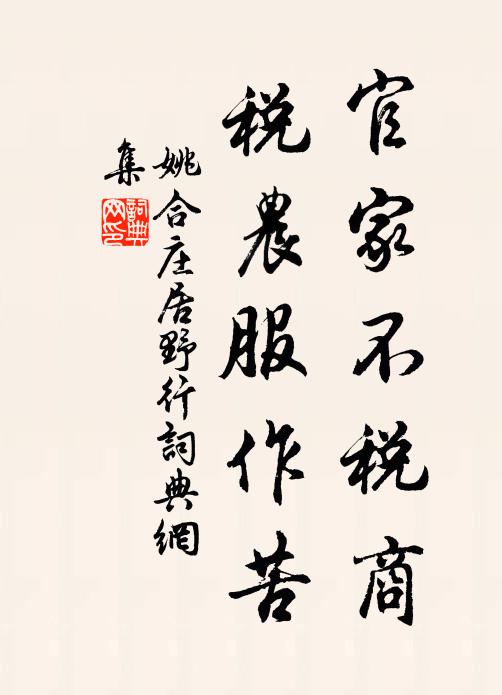 官家不税商
税農服作苦
姚合庄居野行詞典網
集
詞典网印